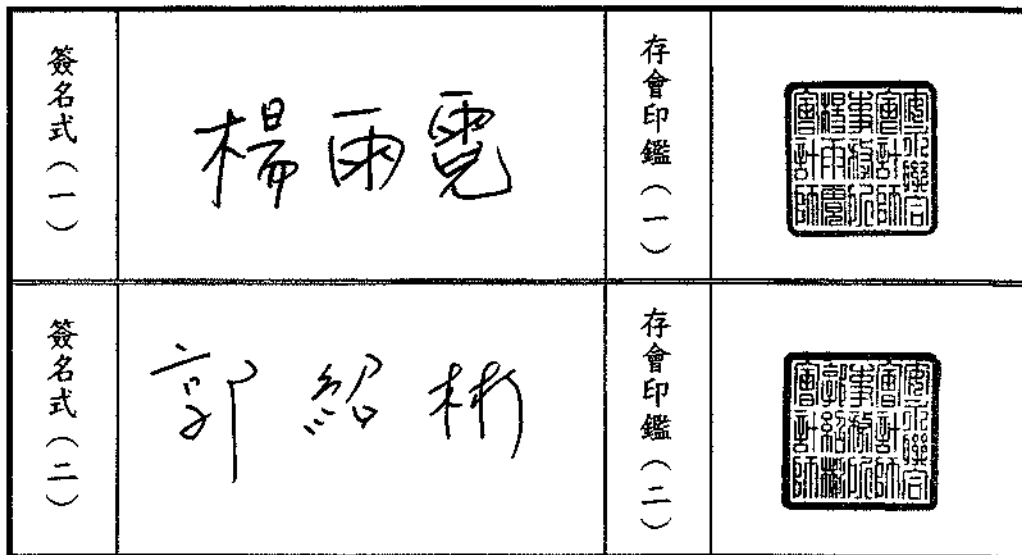 簽名式(一)
楊雨霓
存會印鑑(一)
安永聯合
會計師
事務所
楊雨霓
會計師
簽名式(二)
郭紹彬
存會印鑑(二)
安永聯合
會計師
事務所
郭紹彬
會計師